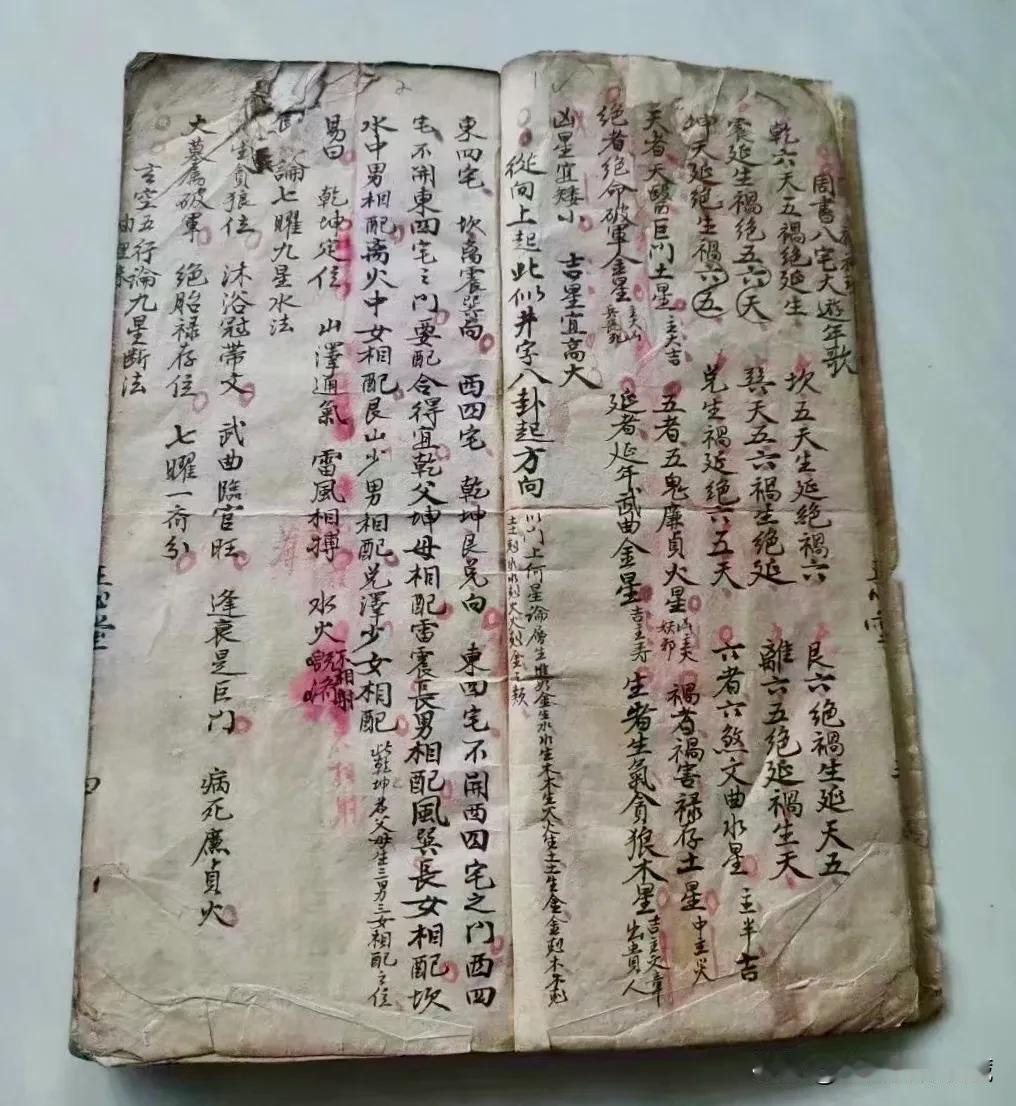 周書八宅大遊年歌
乾六天五禍絕延生 坎五天生延絕禍六 艮六絕禍生延天五
震延生禍絕五六天 巽天五六禍生絕延 離六五絕延禍生天
坤天延絕生禍六五 兌生禍延絕六五天 六者六煞文曲水星 主半吉
天者天醫巨門土星 主大吉 五者五鬼廉貞火星 禍者禍害祿存土星 中主災
絕者絕命破軍金星 延者延年武曲金星 吉主寿 生者生氣貪狼木星 吉主文章 出貴人
凶星宜矮小 吉星宜高大
從向上起此似井字八卦起方向 以門上何星論層生
金生水水生木木生火火生土土生金金剋木
土剋水水剋火火剋金之類
東四宅 坎离震巽向 西四宅 乾坤艮兌向 東四宅不開西四宅之門西四
宅不開東四宅之門要配合得宜乾父坤母相配雷震長男相配風巽長女相配坎
水中男相配离火中女相配艮山少男相配兌澤少女相配 此乾坤若父母生三男三女相配之位
易曰 乾坤定位 山澤通氣 雷風相搏 水火 不相射 既濟
論七曜九星水法
貪狼位 沐浴冠帶文 武曲臨官旺 逢衰是巨門 病死廉貞火
大墓屬破軍 絕胎祿存位 七曜一齊分
玄空五行論九星斷法